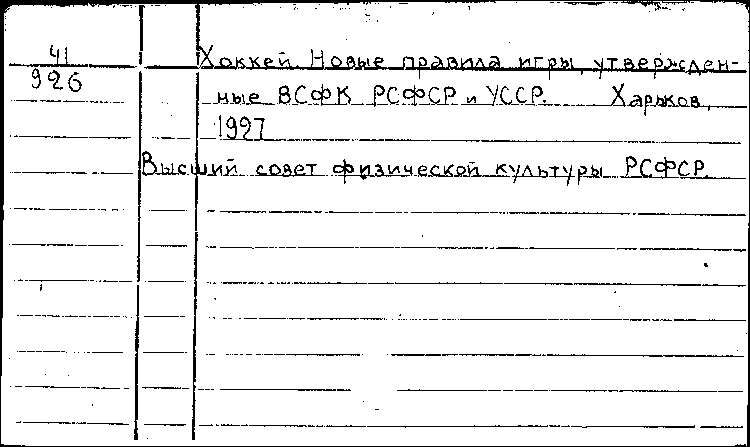 41
926
Хоккей. Новые правила игры, утвержден-
ные ВСФК РСФСР и УССР. Харьков,
1927
Высший совет физической культуры РСФСР.